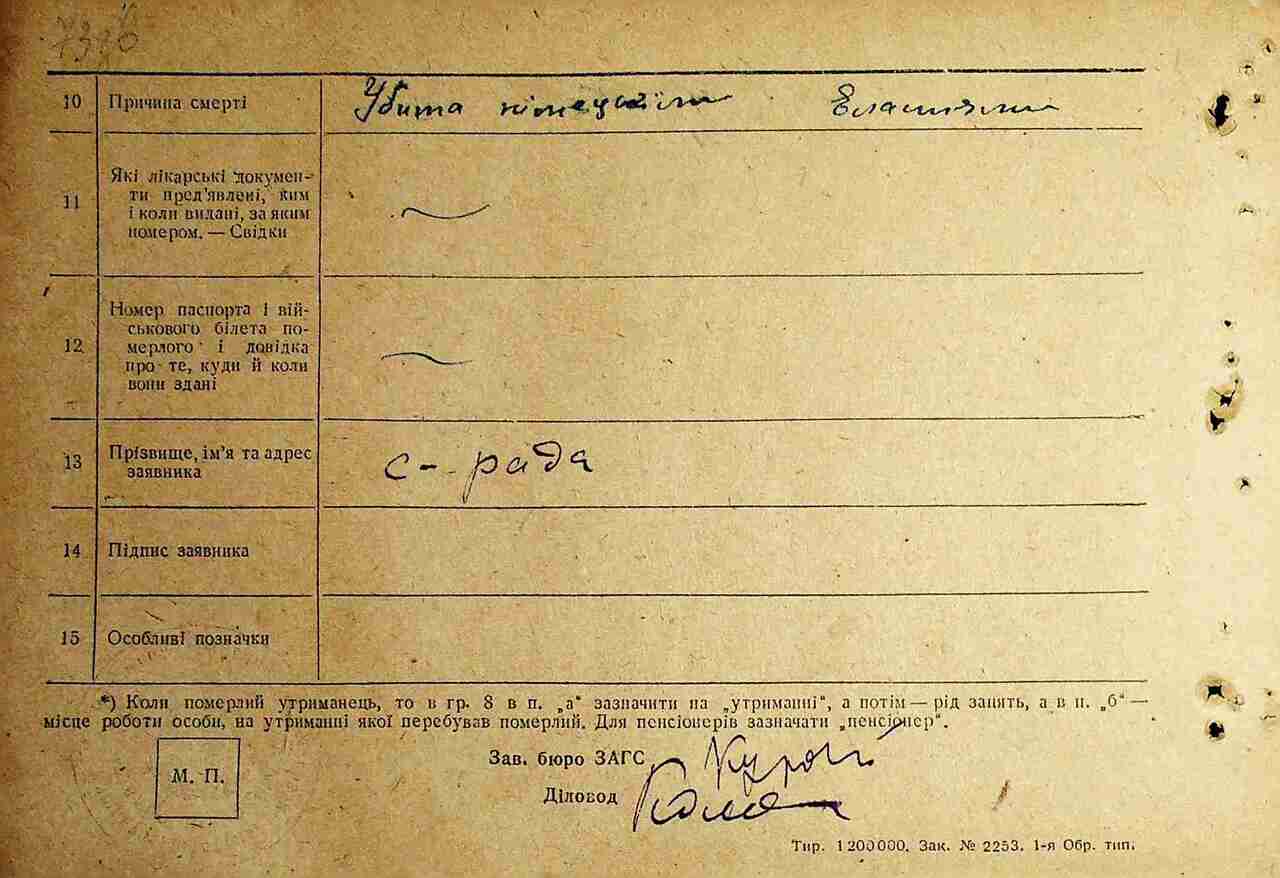 10 Причина смерті Убита німецькіми Властями
11 Які лікарські докумен-
ти пред'явлені, ким
і коли видані, за яким
номером. — Свідки
12 Номер паспорта і вій-
ськового білета по-
мерлого і довідка
про те, куди й коли
вони здані
13 Прізвище, ім'я та адрес
заявника с-рада
14 Підпис заявника
15 Особливі позначки
*) Коли померлий утриманець, то в гр. 8 в п. „а“ зазначити на „утриманні“, а потім — рід занять, а в п. „б“ —
місце роботи особи, на утриманні якої перебував померлий. Для пенсіонерів зазначати „пенсіонер“.
Зав. бюро ЗАГС
М. П.
Діловод
Тир. 1 200 000. Зак. № 2253. 1-я Обр. тип.